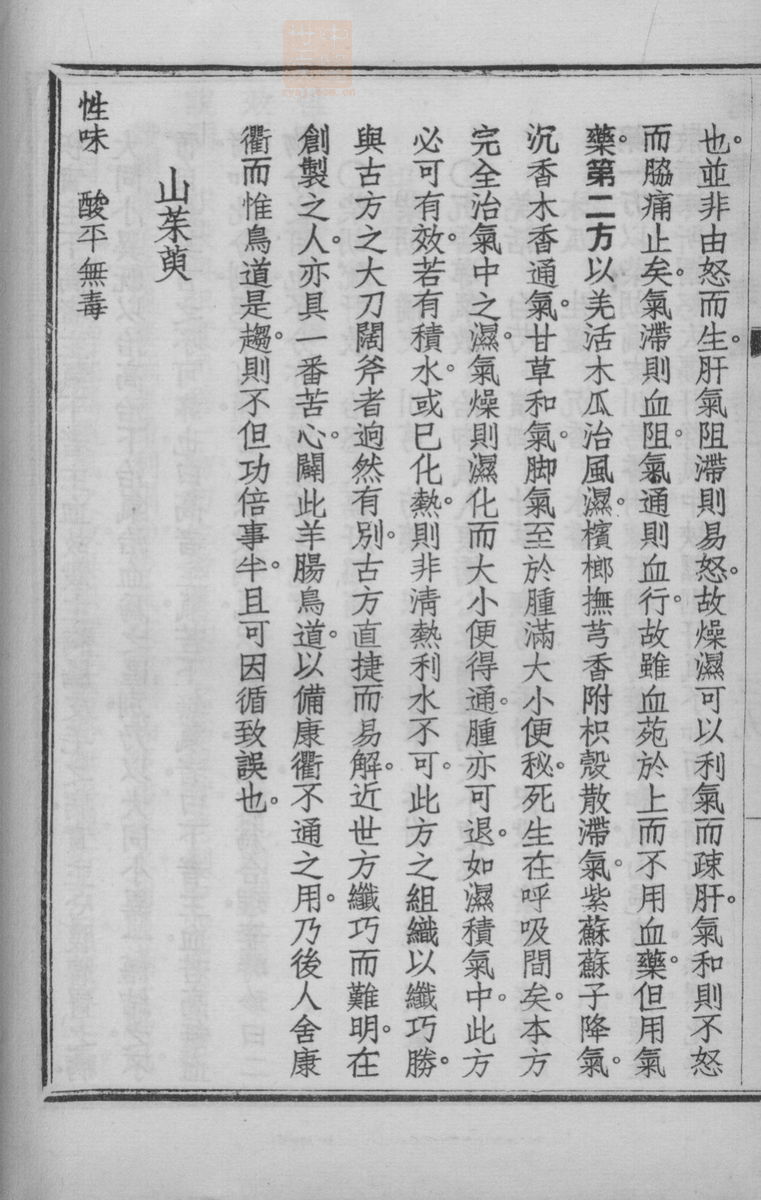 也。並非由怒而生。肝氣阻滯則易怒。故燥濕可以利氣而疎肝。氣和則不怒
而脇痛止矣。氣滯則血阻。氣通則血行。故雖血苑於上而不用血藥。但用氣
藥。第二方以羌活木瓜治風濕。檳榔撫芎香附枳殼散滯氣。紫蘇蘇子降氣。
沉香木香通氣。甘草和氣。脚氣至於腫滿大小便秘。死生在呼吸間矣。本方
完全治氣中之濕。氣燥則濕化而大小便得通。腫亦可退。如濕積氣中。此方
必可有效。若有積水。或已化熱。則非清熱利水不可。此方之組織以纖巧勝。
與古方之大刀闊斧者逈然有別。古方直捷而易解。近世方纖巧而難明。在
創製之人。亦具一番苦心。闢此羊腸鳥道。以備康衢不通之用。乃後人舍康
衢而惟鳥道是趨。則不但功倍事半。且可因循致誤也。
山茱萸
性味 酸平無毒